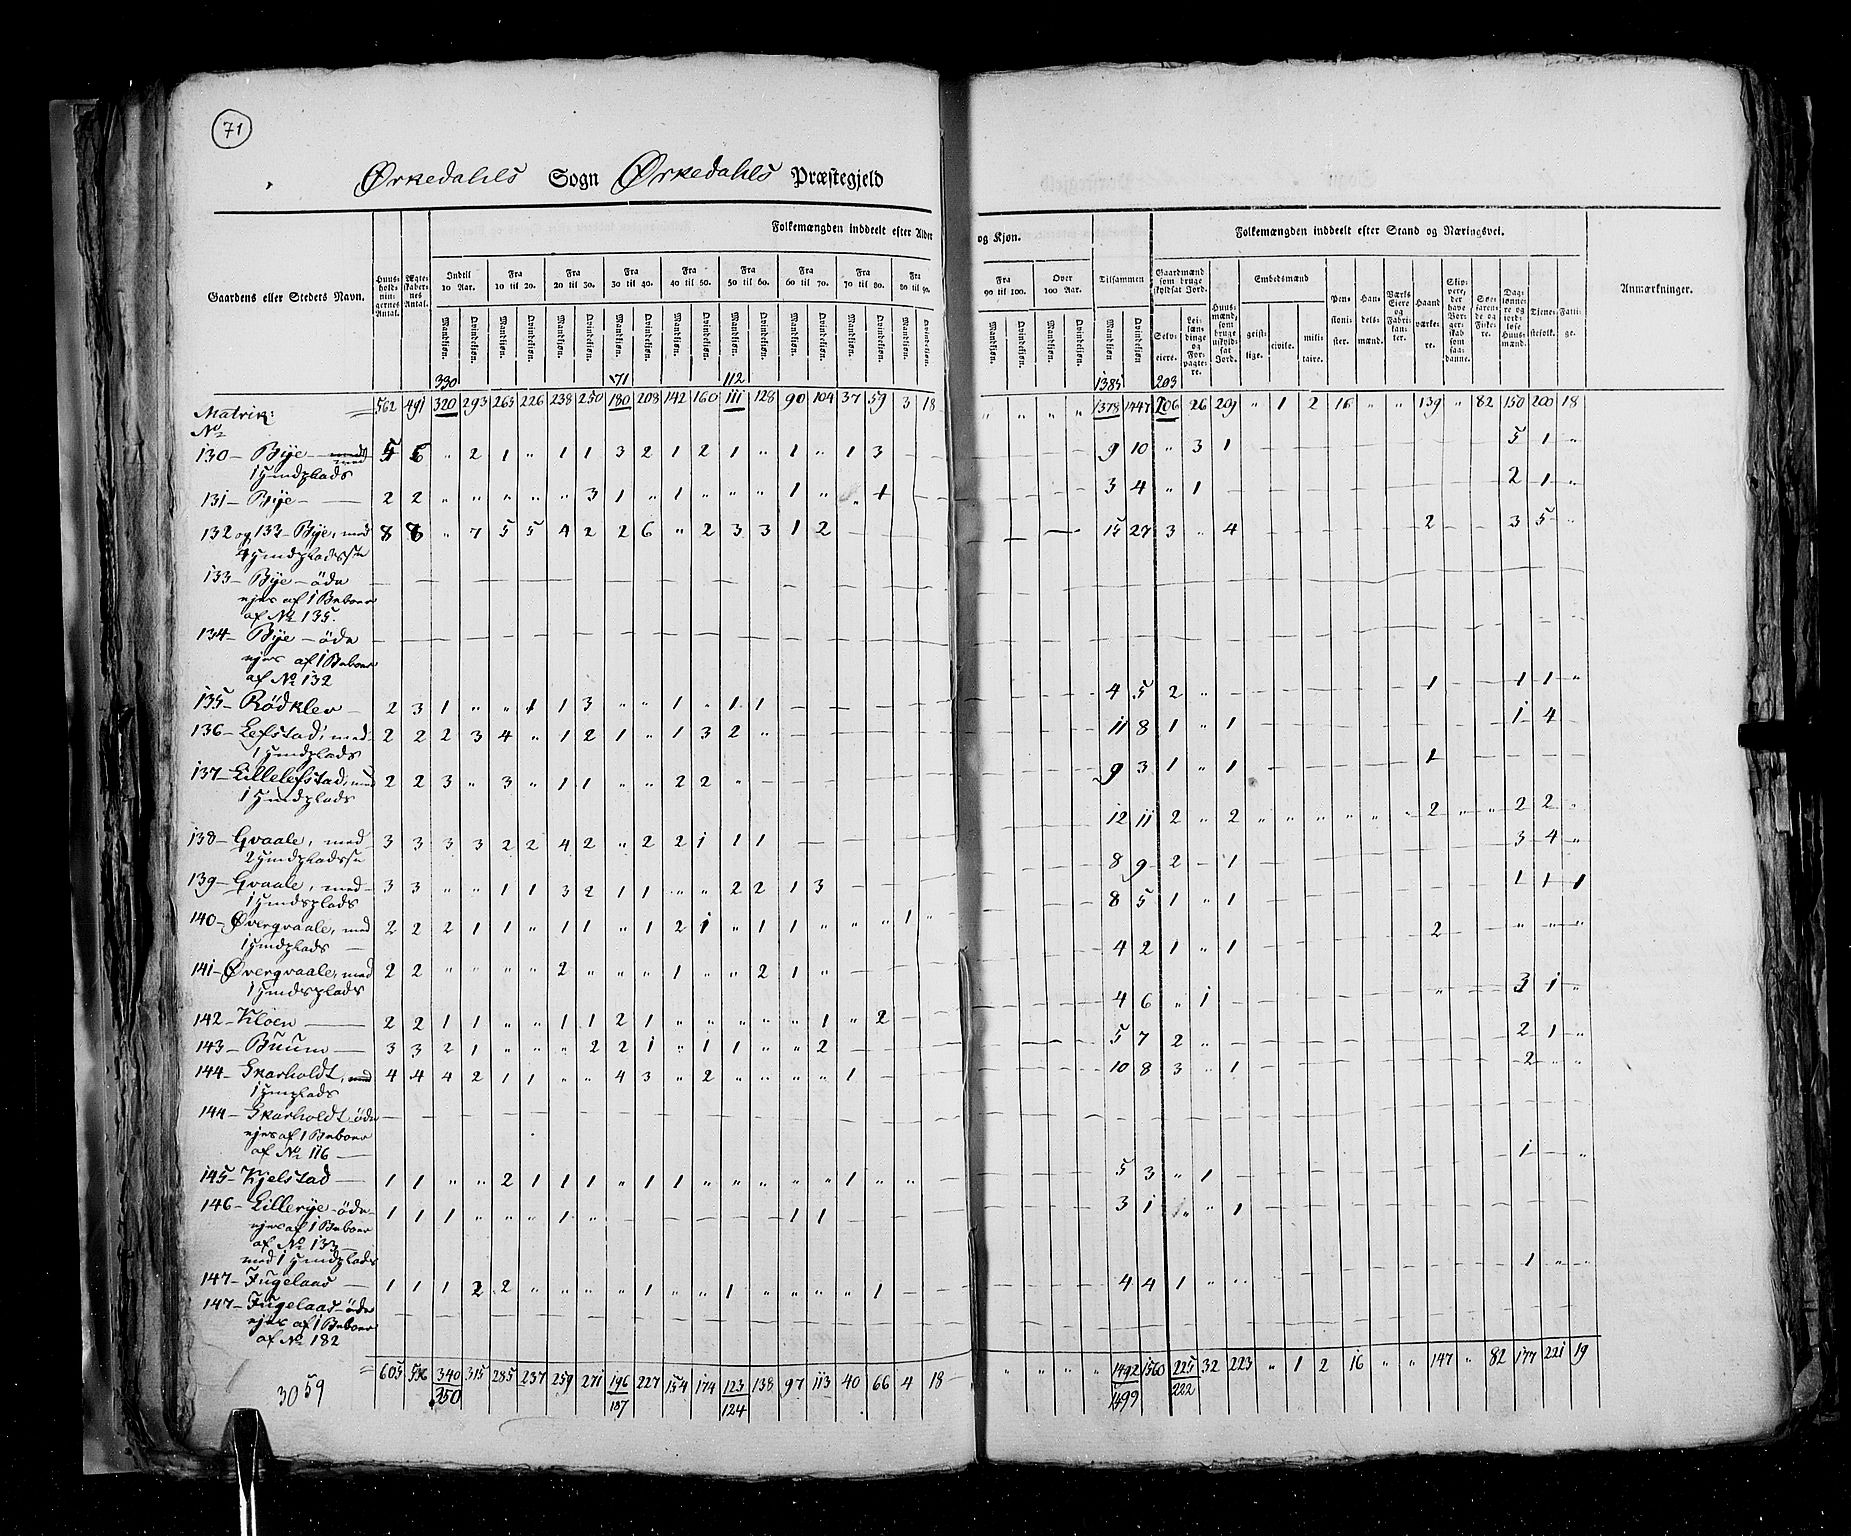 71
Ørkedahls Sogn Ørkedahls Præstegjeld
Folkemængden inddeelt efter Alder og Kjøn.
Folkemængden inddeelt efter Stand og Næringsvei.
Gaardens eller Stedets Navn.
Huusholdningernes Antal.
Ægteskabernes Antal.
Indtil 10 Aar.
Fra 10 til 20.
Fra 20 til 30.
Fra 30 til 40.
Fra 40 til 50.
Fra 50 til 60.
Fra 60 til 70.
Fra 70 til 80.
Fra 80 til 90.
Fra 90 til 100.
Over 100 Aar.
Tilsammen
Mandkjøn. Qvindekjøn.
Gaardmænd som bruge skyldsat Jord.
Selveiere.
Leilændinge og Forpagtere.
Huusmænd, som bruge uskyldsat Jord.
Embedsmænd
geistlige. civile. militaire.
Pensionister.
Handelsmænd.
Værks Eiere og Fabrikanter.
Haandværkere.
Skippere, der have Borgerskab som saadanne.
Søefarende og Fiskere.
Daglønnere og jordløse Huusmænd.
Tjenestefolk.
Fattige.
Anmærkninger.
330 171 112 1385 203
Matrik: № = 562 491 320 293 263 226 238 250 180 208 142 160 111 128 90 104 37 59 3 18 " " " " 1378 1447 206 26 209 " 1 2 16 " " 139 " 82 150 200 18
130 – Bye – med 5 6 " 2 1 " 1 1 3 2 1 2 1 " 1 " 1 3 – – 9 10 " 3 1 5 1 "
131 – Bye – 2 2 " " " " " 3 1 " 1 " " " 1 " " 1 3 4 " 1 2 1 "
132 og 133 – Bye, med 8 8 " 7 5 5 4 2 2 6 " 2 3 3 1 2 15 27 3 " 4 2 3 5 "
133 – Bye – öde
af № 135.
134 – Bye – öde
af № 132
135 – Rödklev – 2 3 1 " " 1 1 3 " " 1 " 1 1 4 5 2 " 1 1 1 "
136 – Lefstad, med 2 2 2 3 4 " 1 2 1 " 1 3 2 " 11 8 1 " 1 1 4
137 – Lillelefstad, med 2 2 3 " 3 " 1 1 " " 2 2 " 9 3 1 " 1 1
138 – Gvaale, med 3 3 3 3 2 2 4 2 " 2 2 1 1 1 12 11 2 " 2 " " " " " " 2 " " 2 2 "
139 – Gvaale, med 3 3 " " 1 1 3 2 1 1 " " 2 2 1 3 8 9 2 – 1 3 4 "
140 – Øvergvaale, med 2 2 2 1 1 " 1 1 " 1 2 1 " 1 1 " " " 1 " 8 5 1 " 1 1 1 1
141 – Øvergvaale, med 2 2 " " " " 2 " " " 1 " " 2 1 " 4 2 1 " 1 2 " " "
142 – Kloen 2 2 1 1 " " 1 1 2 1 " " " " " 1 " 2 4 6 " 1 " 3 1 "
143 – Buum 3 3 2 1 " " " 2 2 1 " 1 1 " " 2 5 7 2 " 2 1 "
144 – Skarholdt, med 4 4 4 2 1 1 " " 4 3 " 2 " " " " 1 10 8 3 " 1 2 "
144 – Skarholdt öde
af № 116
145 – Kjelstad 1 1 " " 2 1 1 1 " 1 1 " " " " " 1 " " 5 3 " 1 1 "
146 – Lillerye – öde 1 1 1 " " " 1 " 1 1 3 1 " " 1
af № 133
147 – Fugelaas 1 1 1 2 2 " " " " 1 " " 1 " " " " 1 4 4 1 " " 1 " "
147 – Fugelaas – öde
af № 182
= 605 536 340 315 285 237 259 271 196 227 154 174 123 138 97 113 40 66 4 18 " " " " 1492 1560 225 32 223 " 1 2 16 " " 147 " 82 177 221 19
350 187 124 1499 222
3059